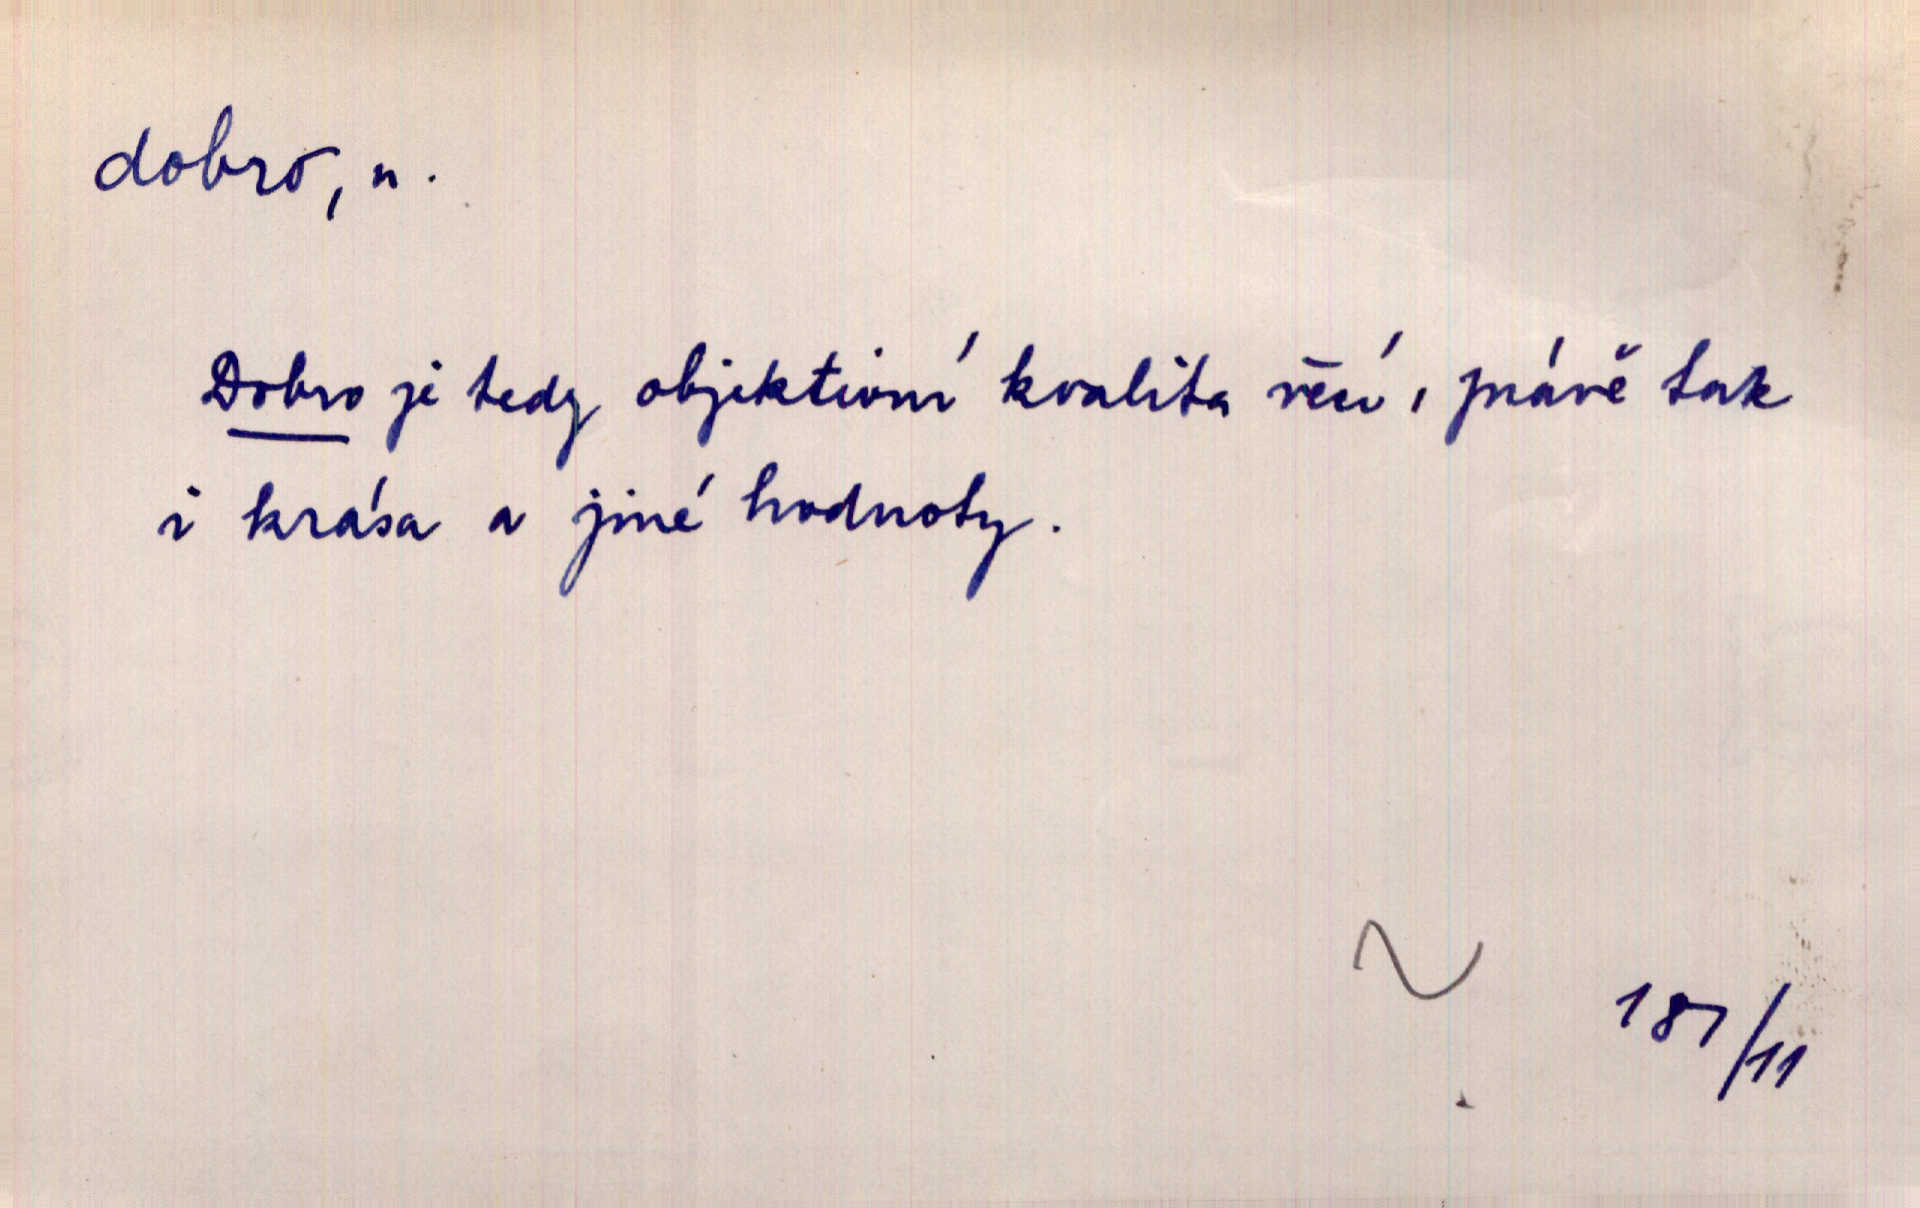 dobro, n.
Dobro je tedy objektivní kvalita věcí, právě tak
i krása a jiné hodnoty.
187/11